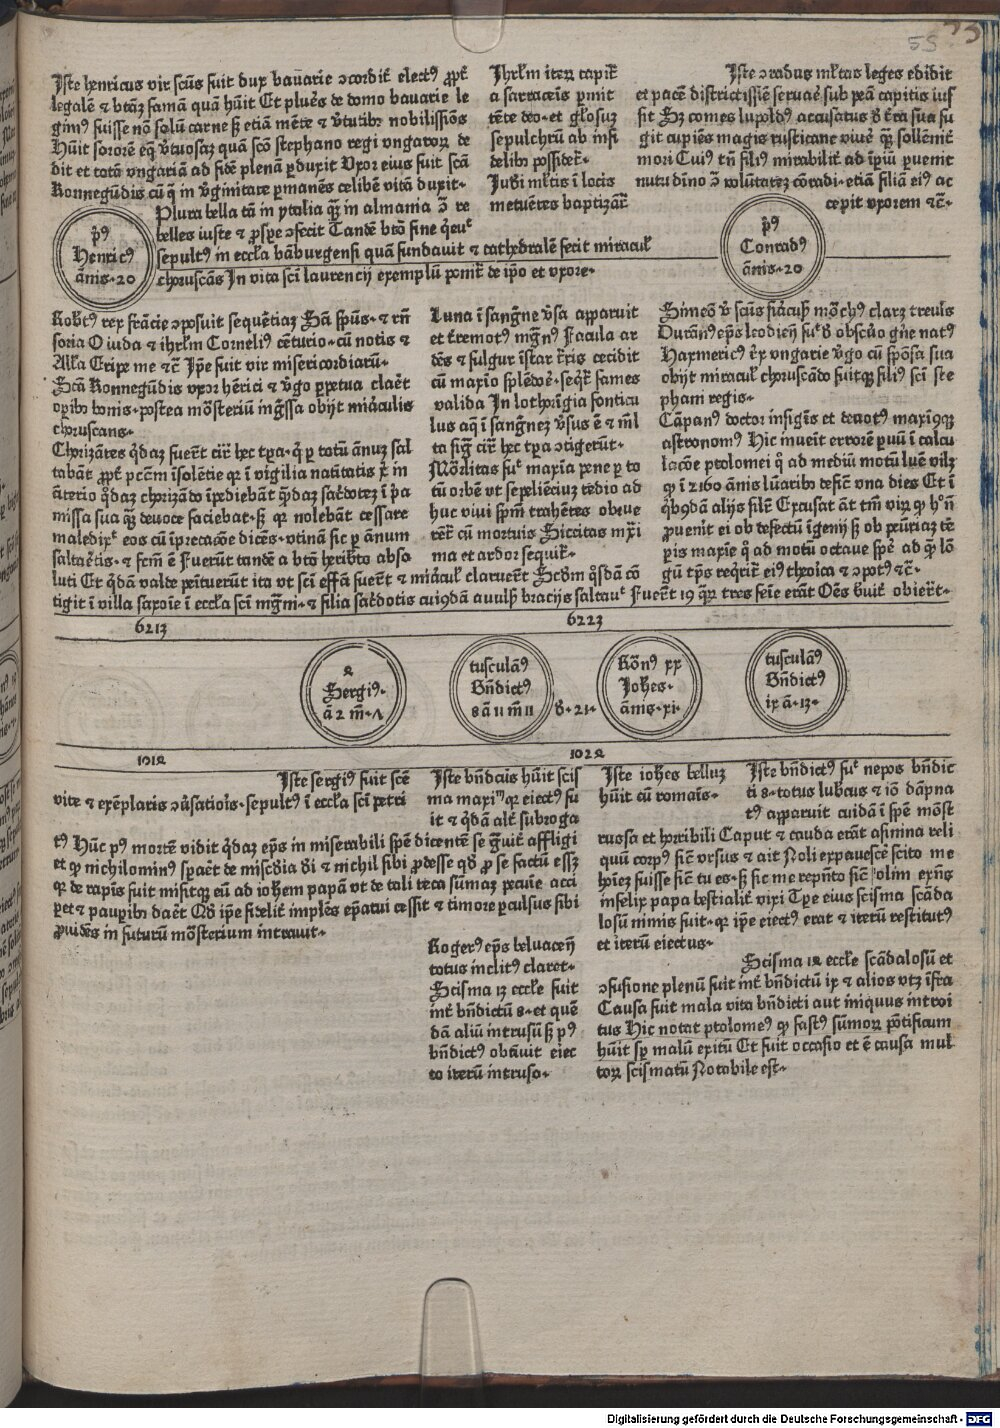 55 73
Iste henricus vir scūs fuit dux bavarie ɔcordit͛ elect⁹ ꝓpt͛
legalē & bt̄aȝ famā quā hūit Et plures de domo bavarie le
gim⁹ fuisse nō solū carne sȝ etiā mēte & v͛tutib⁹ nobilissīos
Hūit sororē eq̄ v͛tuosaȝ quā scō stephano regi vngaroꝝ de
dit et totā vngariā ad fidē plenā ꝑduxit Vxor eius fuit scā
Konnegūdis cū q̄ in v͛ginitate ꝑmanēs celibē vitā duxit·
Plura bella tā in ytalia qꝫ in almania ɔ̄ re
belles iuste & ꝓspe ɔfecit Tandē bt̄o fine q͛euit
sepult⁹ in eccl̄a bāburgensi quā fundauit & cathedralē fecit miracul͛
choruscās In vita sc̄i laurencij exemplū ponit͛ de ip̄o et vxore·
p͛⁹
Henric⁹
ānis·20
Ihrl̄m iteꝝ capit͛
a sarracēis ꝑmit
tēte deo·et gl̄osuȝ
sepulchrū ab infi
delib⁹ possidet͛·
Iudi ml̄tis ī locis
metuētes baptizāt͛
Iste ɔradus ml̄tas leges edidit
et pacē districtissīe seruaē sub pēa capitis ius
sit Sȝ comes lupold⁹ accusatus d͛ t͛ra sua fu
git cupiēs magis rusticane viuē qꝫ sollēnit͛
mori Cui⁹ tn̄ fili⁹ mirabilit͛ ad īpiū ꝑuenit
nutu dīno ɔ̄ volūtateȝ cōradi·etiā filiā ei⁹ ac
cepit vxorem &c̄·
p͛⁹
Conrad⁹
ānis·20
Robt͛⁹ rex frācie ɔposuit sequētiaȝ Sā spūs·& rn̄
soria O iuda & ihrl̄m Corneli⁹ cēturio·cū notis &
All̄a Eripe me &c̄ Ip̄e fuit vir misericordiarū·
Scā Konnegūdis vxor hērici & v͛go ꝑpetua claēt
oꝑib⁹ bonis·postea mōsteriū īg͛ssa obijt mir̄aculis
choruscans·
Chorizātes q̄daȝ fuerūt cir͛ hec tꝑa·q̄ ꝑ totū ānuȝ sal
tabāt ꝓpt͛ pctm̄ īsolētie qꝛ ī vigilia natiutatis xp̄i in
āterio q̄daȝ chorizādo īpediebāt q̄daȝ sac͛doteȝ ī p͛a
missa sua qꝫ deuoce faciebat·sȝ qꝛ nolebāt cessare
maledix͛ eos cū īprecacōe dicēs·vtinā sic ꝑ annum
saltaretis·& fcm̄ ē Fuerūt tandē a bt̄o herib͛to abso
luti Et q̄dā valde penituerūt ita vt sc̄i effā fuerūt & mir̄acul͛ claruerūt Scd̄m q̄sdā cō
tigit ī villa saxoīe ī eccl̄a sc̄i mḡni·& filia sac͛dotis cui⁹dā auulsis bracijs saltauit Fuerūt 19 qꝛ tres feīe erāt Oēs bͬuit͛ obierūt·
Luna ī sangue v͛sa apparuit
et t͛remot⁹ mgn⁹ Facula ar
dēs & fulgur īstar t͛ris cecidit
cū maxīo splēdore·seqt͛ fames
valida In lothorīgia fonticu
lus aq̄ ī sangneȝ v͛sus ē & ml̄
ta sig̅ cir͛ hec tꝑa ɔtigerūt·
Mōrlitas fuit maxīa pene ꝑ to
tū orbē vt sepeliēciuȝ tedio ad
huc viui spm̄ trahētes obrue
rēt͛ cū mortuis Siccitas mxī
ma et ardor sequit͛·
Simeō v͛ scūs fiducus mōch⁹ clarȝ treul͛s
Durān⁹ ep̄s leodieñ fuit d͛ obscuro gne nat⁹
Haymeric⁹ rex vngarie v͛go cū spōsa sua
obijt miracul͛ choruscādo fuitqꝫ fili⁹ sc̄i ste
phani regis·
Cāpan⁹ doctor insignis et deuot⁹ maxī⁹qꝫ
astronom⁹ Hic inueīt errorē ꝑuū ī calcu
lacōe ptolomei q̄ ad mediū motū lune vilȝ
qꝛ ī 2160 ānis lūarib⁹ defic͛ vna dies Et ī
q̄b⁹dā alijs sil̄r Excusat āt tm̄ virȝ qꝛ h⁰ n̄
ꝓuenit ei ob defectū īgenij sȝ ob penuriaȝ tē
ꝑis maxīe q̄ ad motū octaue spē ad qꝫ lō
gū tp̄s reqrit͛ ei⁹ theoica & ɔpot⁹ &c̄·
6213
6223
2
Sergi⁹·
ā 2 m̄·Λ
tusculān⁹
Bn̄dict⁹
8 ā 11 m̄ 11
d͛·21·
Rōn⁹ xx
Iohes·
ānis·xi·
tusculān⁹
Bn̄dict⁹
ix ā·13·
1012
1022
Iste sergi⁹ fuit scē
vite & exēplaris ɔu͛satiois·sepult⁹ ī eccl̄a sc̄i petri
Iste bn̄dcūs hūit scis
ma maxim̄ qꝛ eiect⁹ fu
it & q̄dā alt͛ subroga
t⁹ Hūc p⁹ mortē vidit q̄daȝ ep̄s in miserabili spē dicentē se g͛uit͛ affligi
et qꝛ nichilomin⁹ sperāet de mīscd̄ia di & nichil sibi ꝓdesse qd̄ ꝓ se factū essȝ
qꝛ de rapīs fuit misitqꝫ eū ad iohem papā vt de tali teca sūmaȝ pecuīe acci
ꝑet & paupib⁹ daēt Qd̄ ip̄e fidelit͛ implēs ep̄atui cessit & timore ꝑculsus sibi
ꝓuidēs in futurū mōsterium intrauit·
Roger⁹ ep̄s beluaceñ
totus inclit⁹ claret·
Scisma 13 eccl̄e fuit
int͛ bn̄dictū 8·et quē
dā aliū intrusū sȝ p⁹
bn̄dict⁹ obtinuit eiec
to iterū intruso·
Iste iohes belluȝ
hūit cū romanis·
Iste bn̄dict⁹ fuit nepos bn̄dic
ti 8·totus lubcus & iō dāpna
t⁹ apparuit cuidā ī spē mōst
ruosa et horribili Caput & cauda erāt asinina reli
quū corp⁹ sic͛ vrsus & ait Noli expauescē scito me
hoīeȝ fuisse sic͛ tu es·sȝ sic me repn̄to sic͛ olim exn̄s
infelix papa bestialit͛ vixi Tꝑe eius scisma scāda
losū nimis fuit·qꝛ ip̄e eiect⁹ erat & iterū restitut⁹
et iterū eiectus·
Scisma 12 eccl̄e scādalosū et
ɔfusione plenū fuit int͛ bn̄dictū ix & alios vtȝ īfra
Causa fuit mala vita bn̄dicti aut iniquus introi
tus Hic notat ptolome⁹ qꝛ fast⁹ sūmoꝝ pōtificum
hūit sp̄ malū exitū Et fuit occasio et ē causa mul
toꝝ scismatū Notabile est·
Digitalisierung gefördert durch die Deutsche Forschungsgemeinschaft · DFG